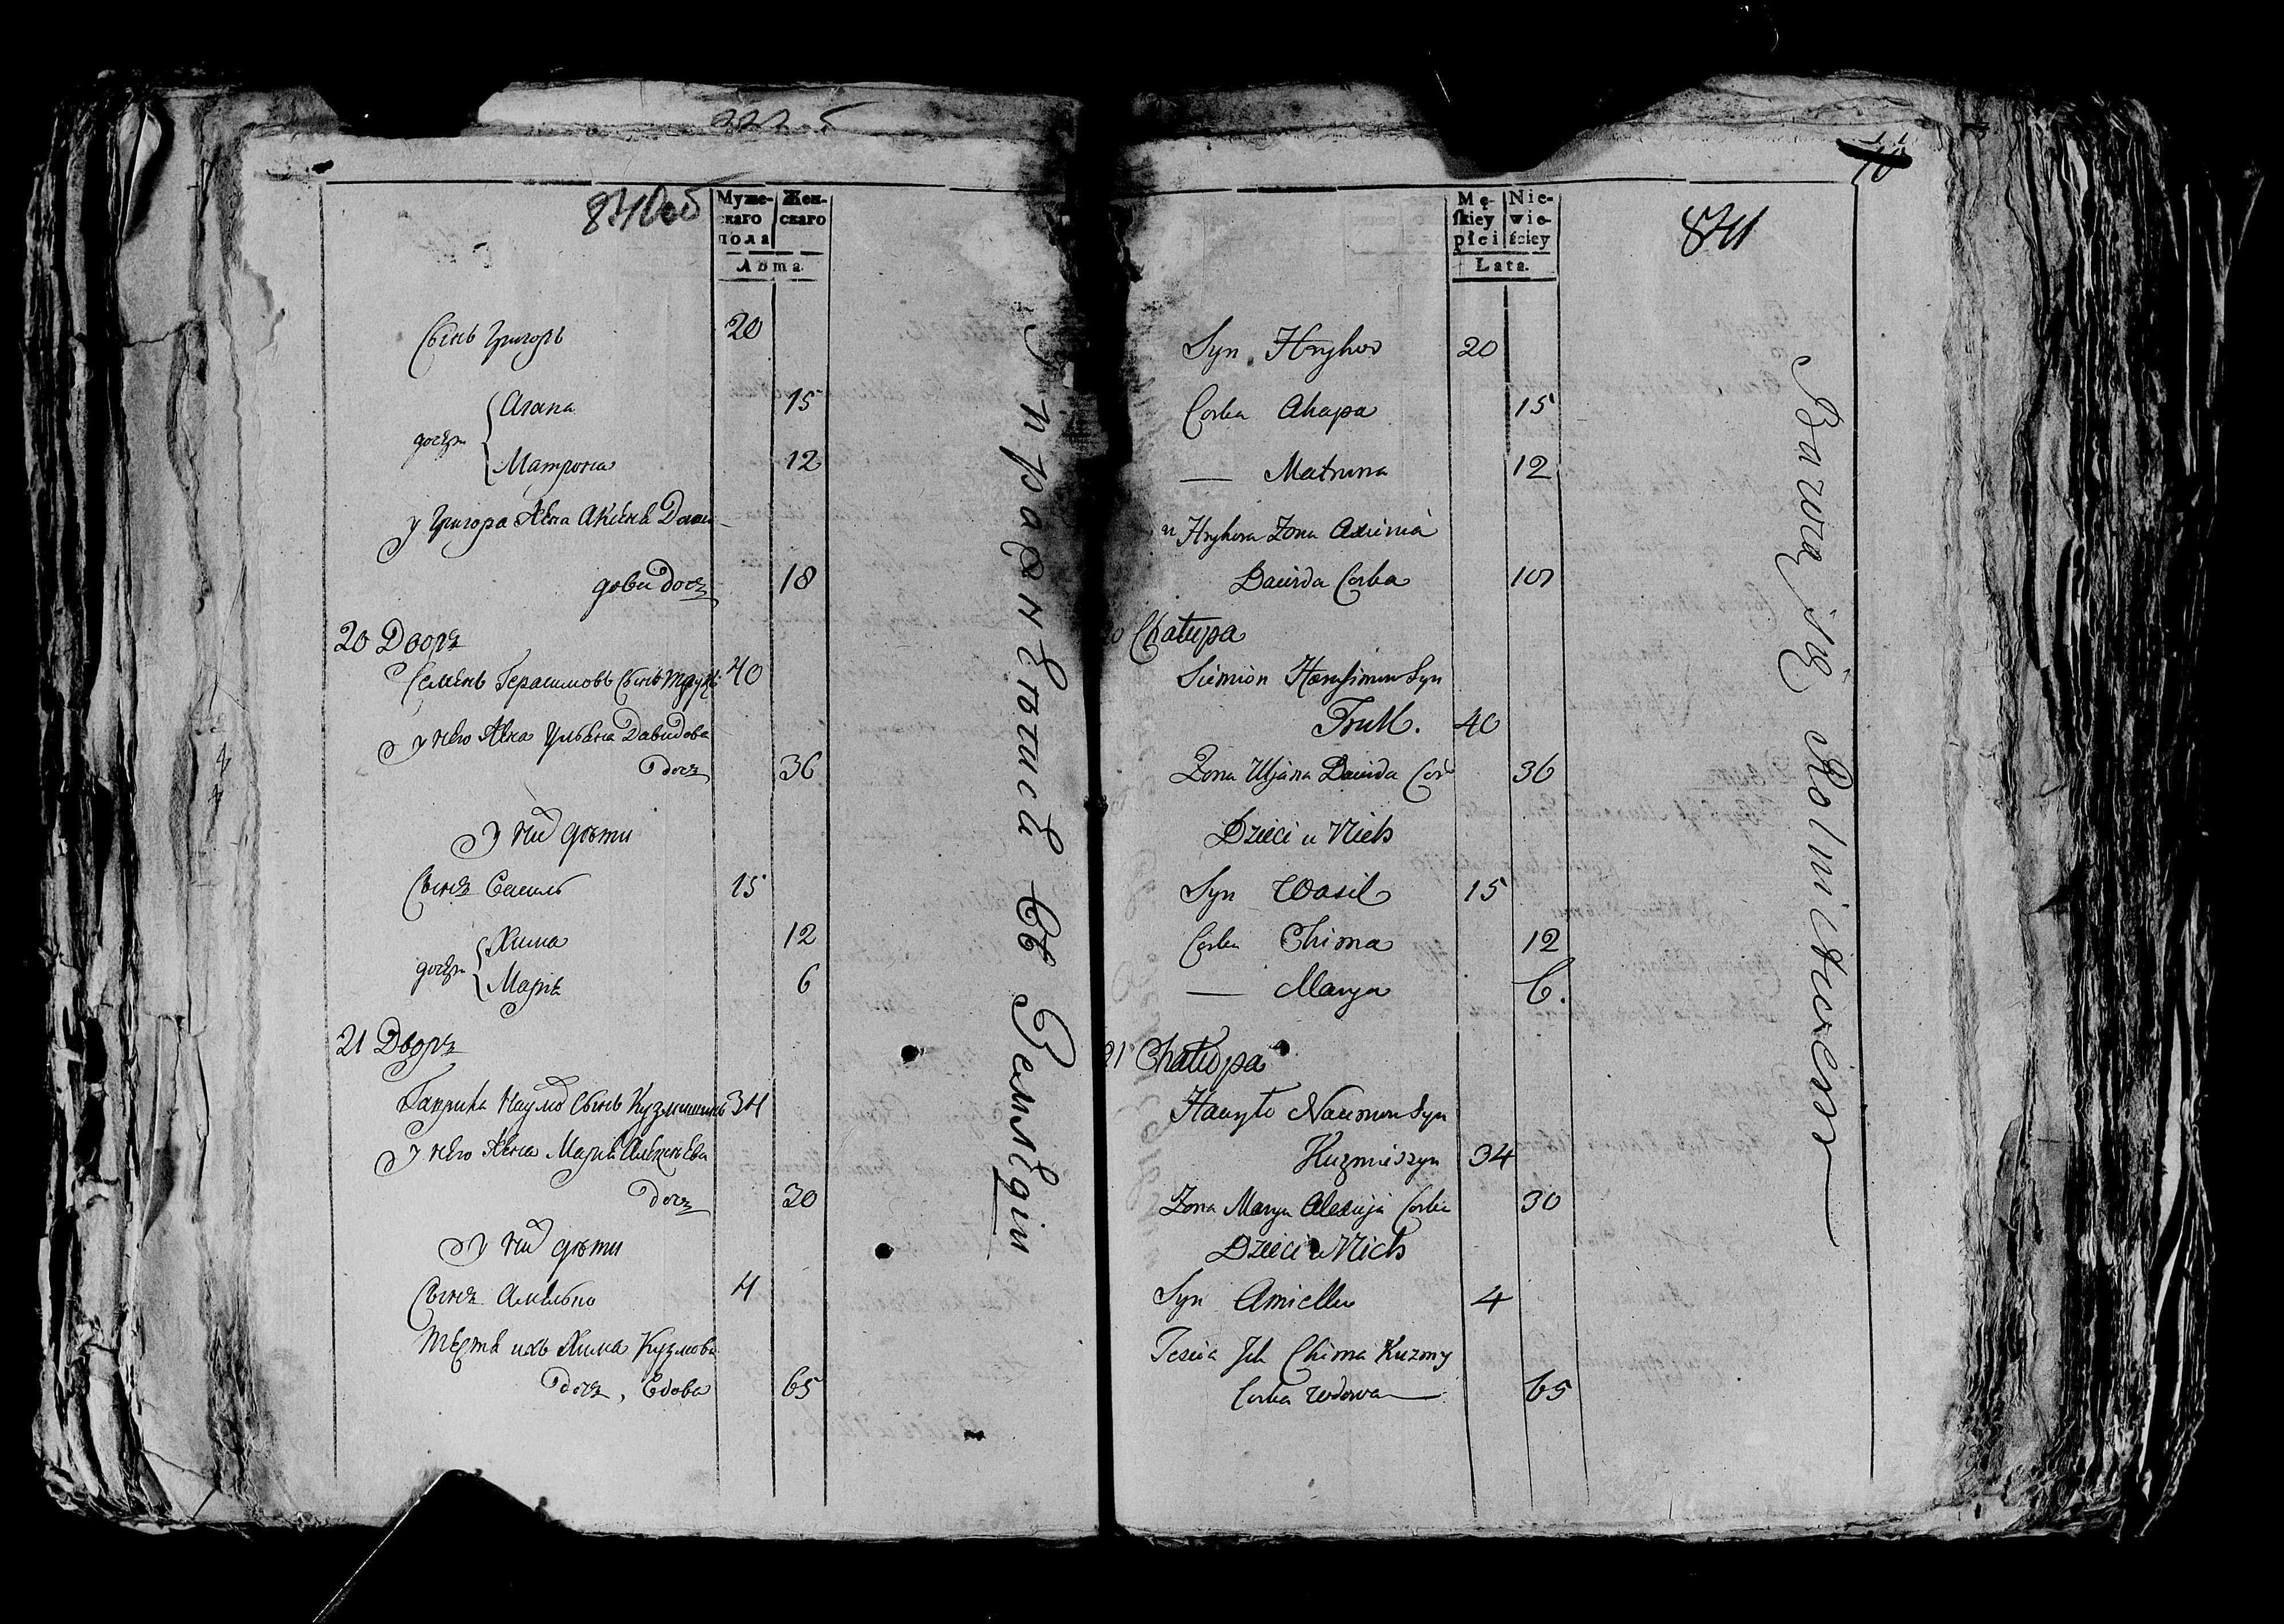 840об
Муже-
скаго
пола
Жен-
скаго
Лѣта
Сынъ Григоръ 20
дочери
Агапа 15
Матрона 12
у Григора жена Аксенія Дави-
дова дочъ 18
20 Дворъ
Семенъ Герасимовъ сынъ 40
у него жена Ульяна Давидова
дочъ 36
у них дѣти
Сынъ Василь 15
дочери
Хима 12
Марія 6
21 Дворъ
Гаврила Наумов сынъ Кузмишинъ 34
у него жена Марія Алексѣева
дочъ 30
у них дѣти
Сынъ Амельно 4
теща ихъ Хима Кузмова
дочъ, вдова 65
упражнѣтися въ Земледіи
11
10
841
Mę-
skiey
płci
Nie-
wie-
ściey
Lata.
Syn Hryhor 20
Corka Ahapa 15
— Matruna 12
u Hryhora Zona Axinia
Dawida Corka 18
20 Chałupa
Siemion Harasimow Syn
40
Zona Uljana Dawida Cor 36
Dzieci u Nich
Syn Wasil 15
Corka Chima 12
— Marya 6.
21 Chałupa
Hawryło Naumow Syn
Kuzmiszyn 34
Zona Marya Alexieja Corka 30
Dzieci u Nich
Syn Amiellu 4
Tescia Jch Chima Kuzmy
Corka wdowa — 65
Bawią się Rolnictwem